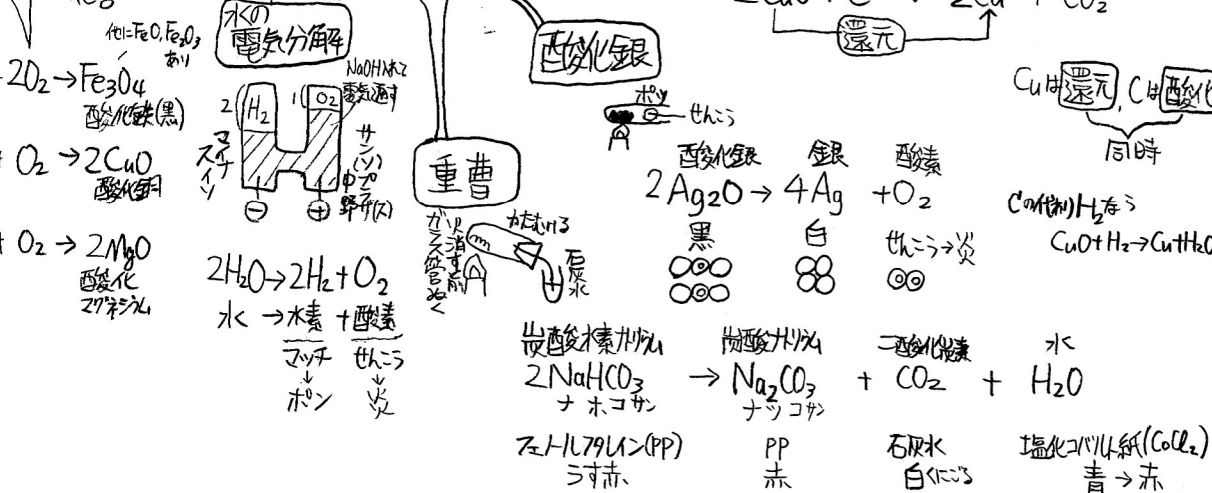 他にFeO,Fe2O3
あり
2O2→Fe3O4
酸化鉄(黒)
O2→2CuO
酸化銅
O2→2MgO
酸化
マグネシウム
水の
電気分解
NaOH入れて
電気通す
2 H2 1 O2
マイナ
スイソ
サン(ソ)
中プラ
野ザ(ス)
⊖ ⊕
2H2O→2H2+O2
水→水素+酸素
マッチ せんこう
↓ ↓
ポン 炎
重曹
火消す前
ガラス管ぬく
かたむける
石灰水
酸化銀
ポッ
せんこう
酸化銀 銀 酸素
2Ag2O→4Ag+O2
黒 白 せんこう→炎
炭酸水素ナトリウム 炭酸ナトリウム 二酸化炭素 水
2NaHCO3→Na2CO3+CO2+H2O
ナホコサン ナッコサン
フェノールフタレイン(PP) PP 石灰水 塩化コバルト紙(CoCl2)
うす赤 赤 白くにごる 青→赤
還元
Cuは還元,Cは酸化
同時
Cの代わりH2なら
CuO+H2→Cu+H2O